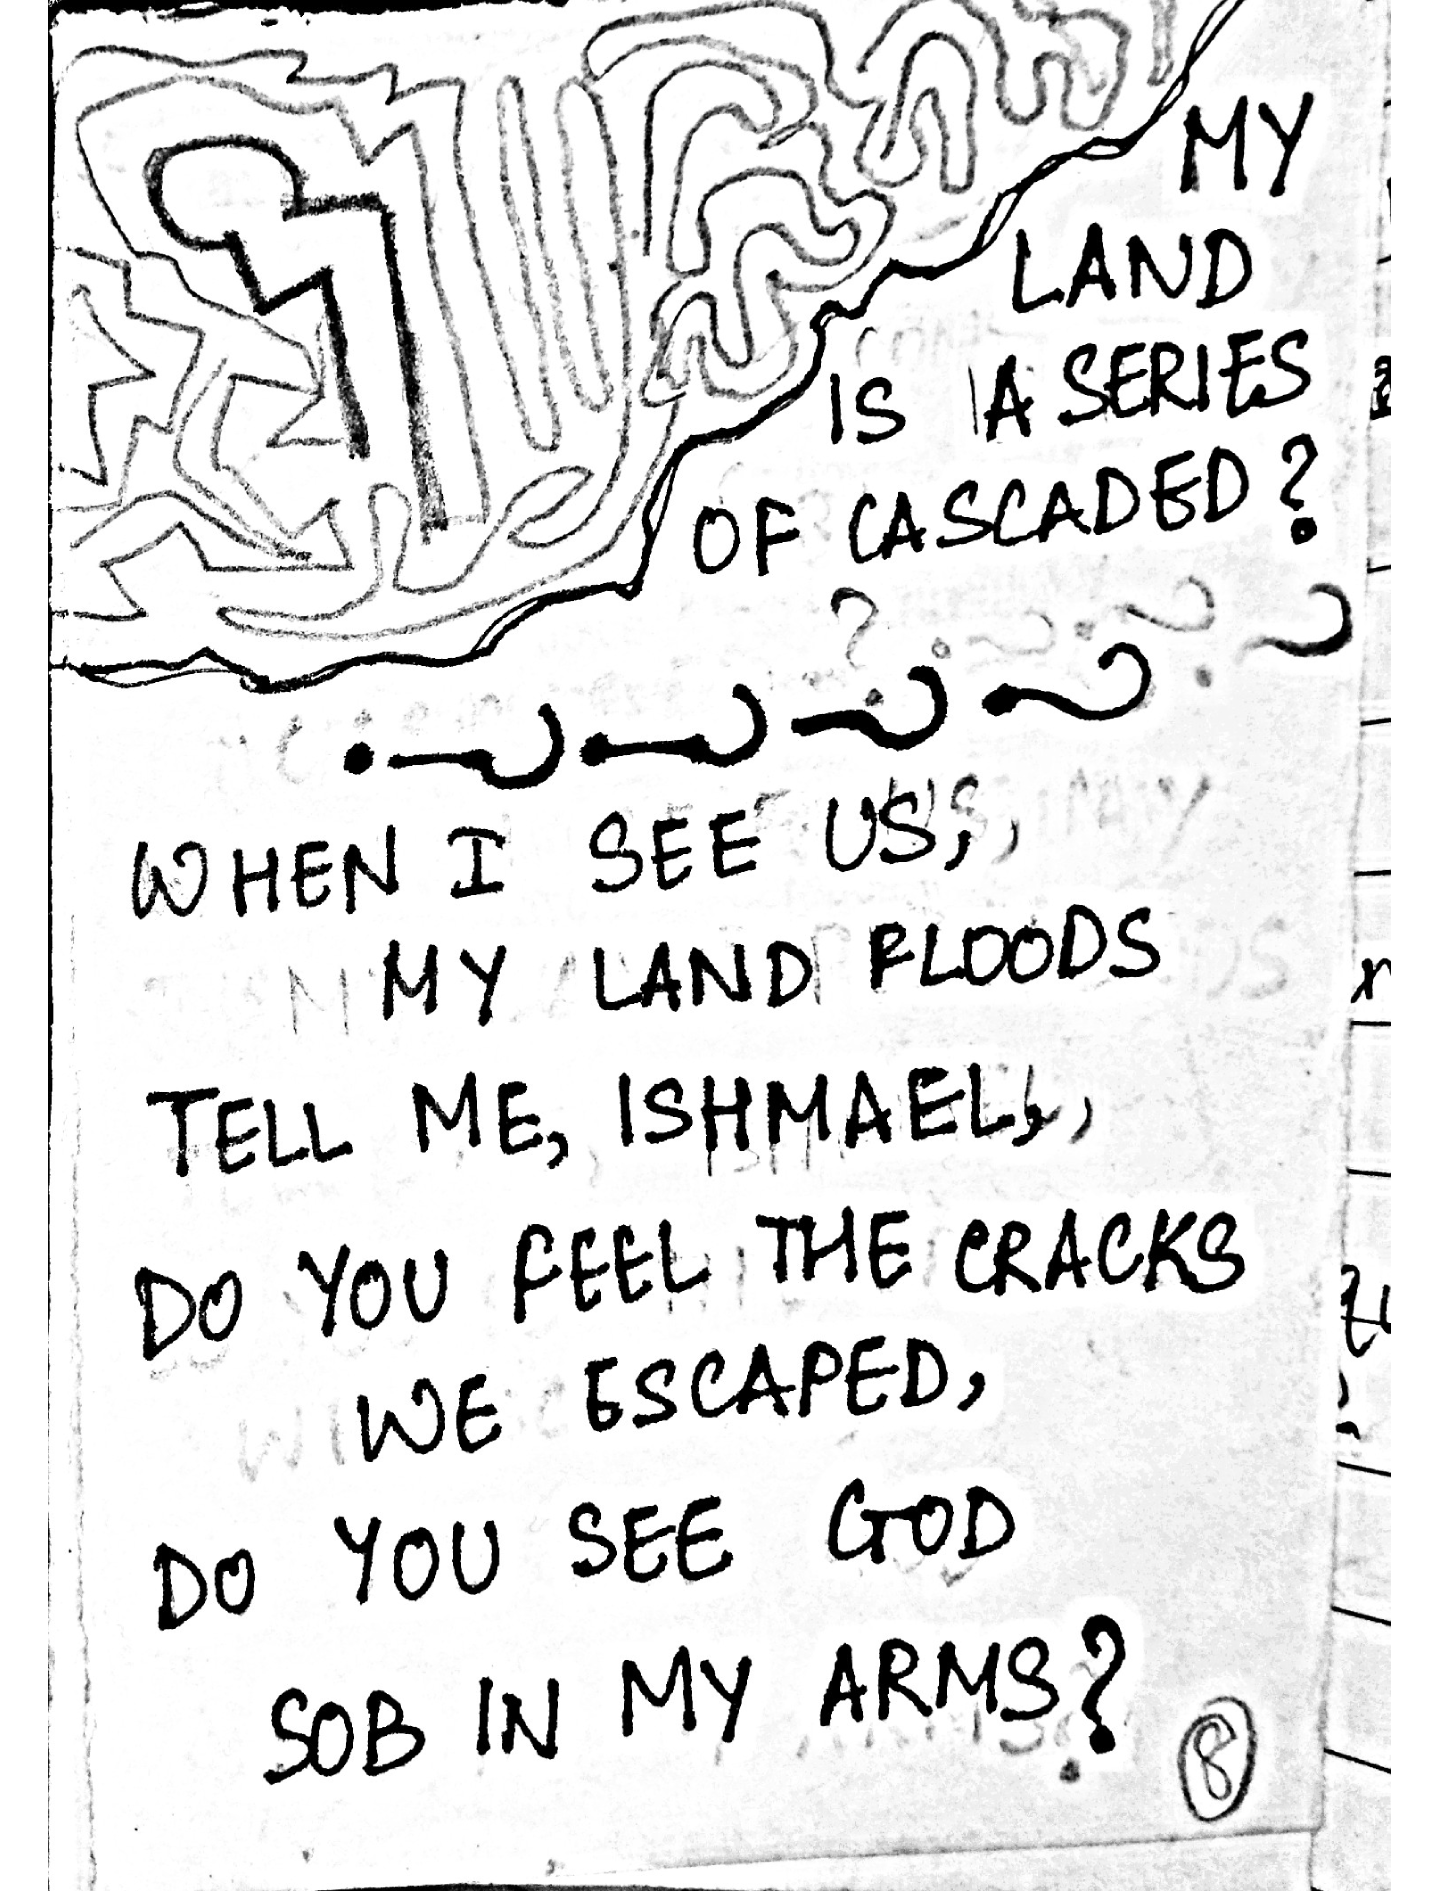 MY
LAND
IS A SERIES
OF CASCADED?
WHEN I SEE US,
MY LAND FLOODS
TELL ME, ISHMAEL,
DO YOU FEEL THE CRACKS
WE ESCAPED,
DO YOU SEE GOD
SOB IN MY ARMS?
8